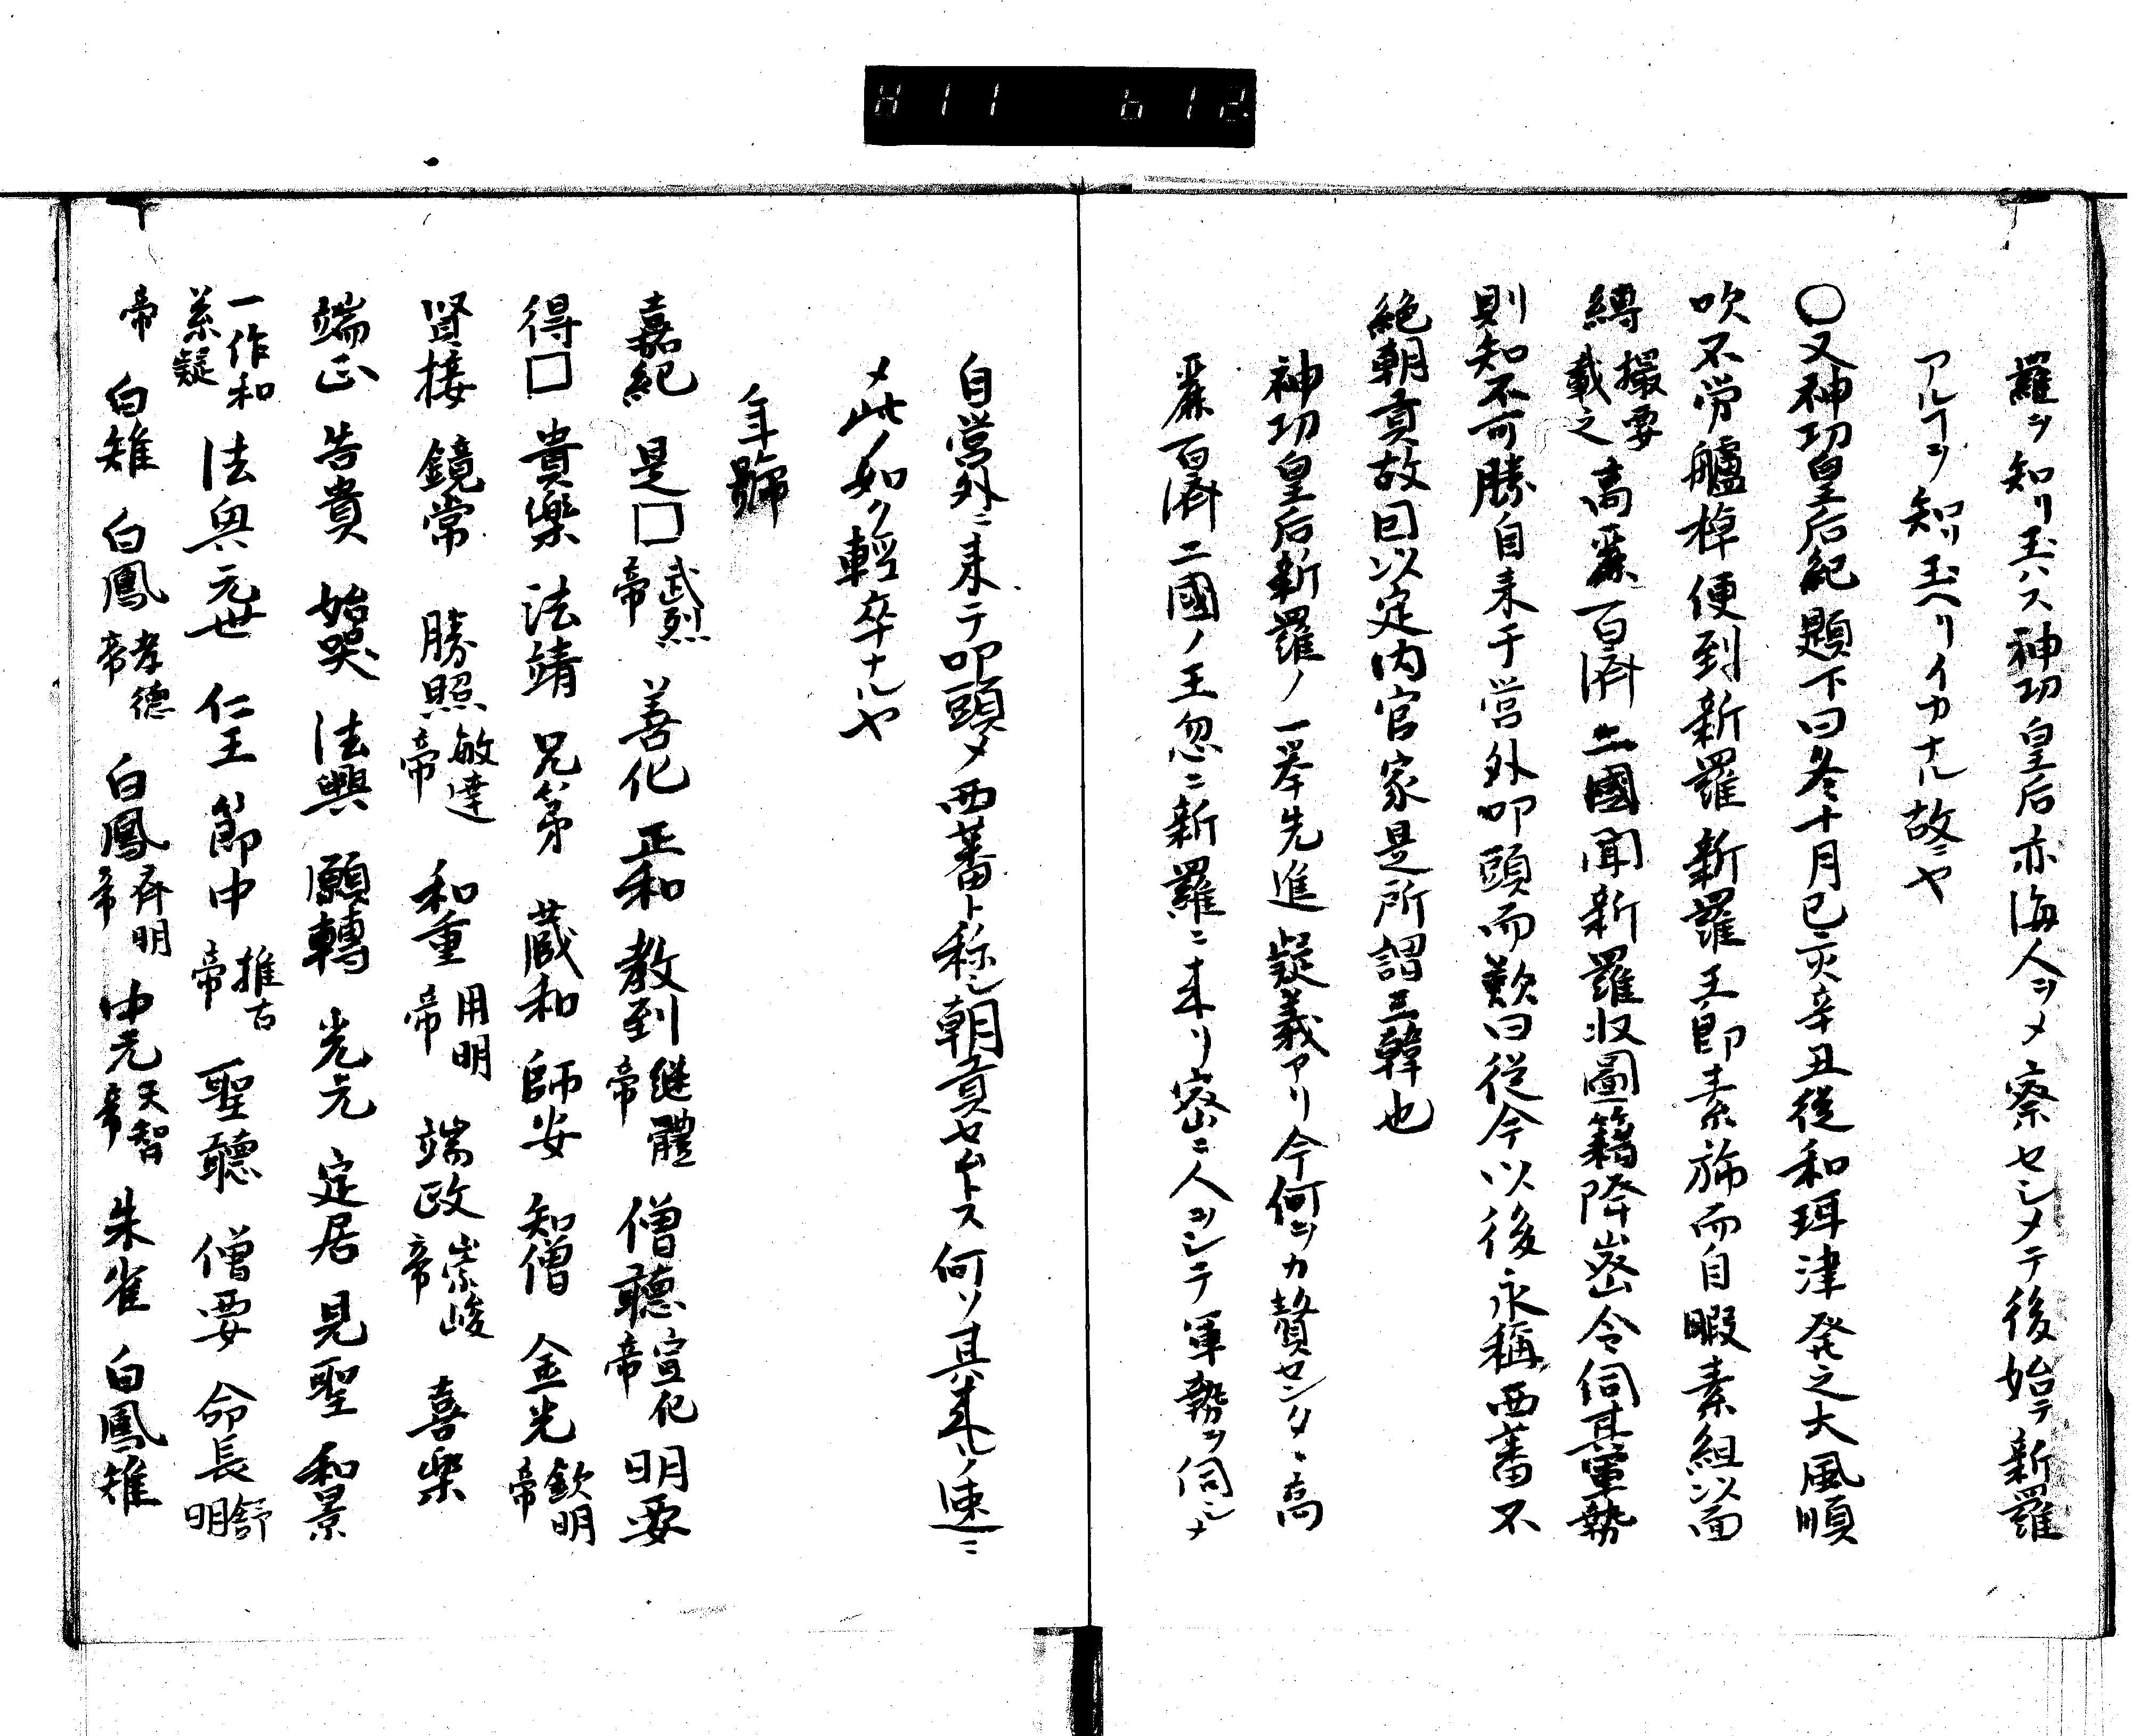 H11 612.
羅ヲ知リ玉ハス神功皇后亦海人ヲメ察セシメテ後始テ新羅
アルヿヲ知リ玉ヘリイカナル故ニヤ
○又神功皇后紀題下曰冬十月己亥辛丑從和珥津発之大風順
吹不労艫棹便到新羅新羅王即素旆而自暇素組以面
縛撮要載之高麗百済二國聞新羅収圖籍降密令伺其軍勢
則知不可勝自来于営外叩頭而歎曰従今以後永稱西蕃不
絶朝貢故因以定内官家是所謂三韓也
神功皇后新羅ノ一挙先進疑義アリ今何ヲカ贅センタヽ高
麗百済二國ノ王忽ニ新羅ニ来リ密ニ人ヲシテ軍勢ヲ伺シメ
自営外ニ来テ叩頭メ西蕃ト称し朝貢セムトス何ソ其来ルノ速ニ
メ此ノ如ク輕卒ナルヤ
年號
嘉紀 是□武烈帝 善化 正和 教到継體帝 僧聴宣化帝 明要
得□ 貴樂 法靖 兄弟 蔵和 師安 知僧 金光欽明帝
賢接 鏡常 勝照敏達帝 和重用明帝 端政崇峻帝 喜楽
端正 告貴 始哭 法興 願轉 光元 定居 見聖 和景
一作和系疑 法興元世 仁王 節中推古帝 聖聴 僧要 命長舒明
帝 白雉 白鳳孝徳帝 白鳳斉明帝 中元天智帝 朱雀 白鳳雉